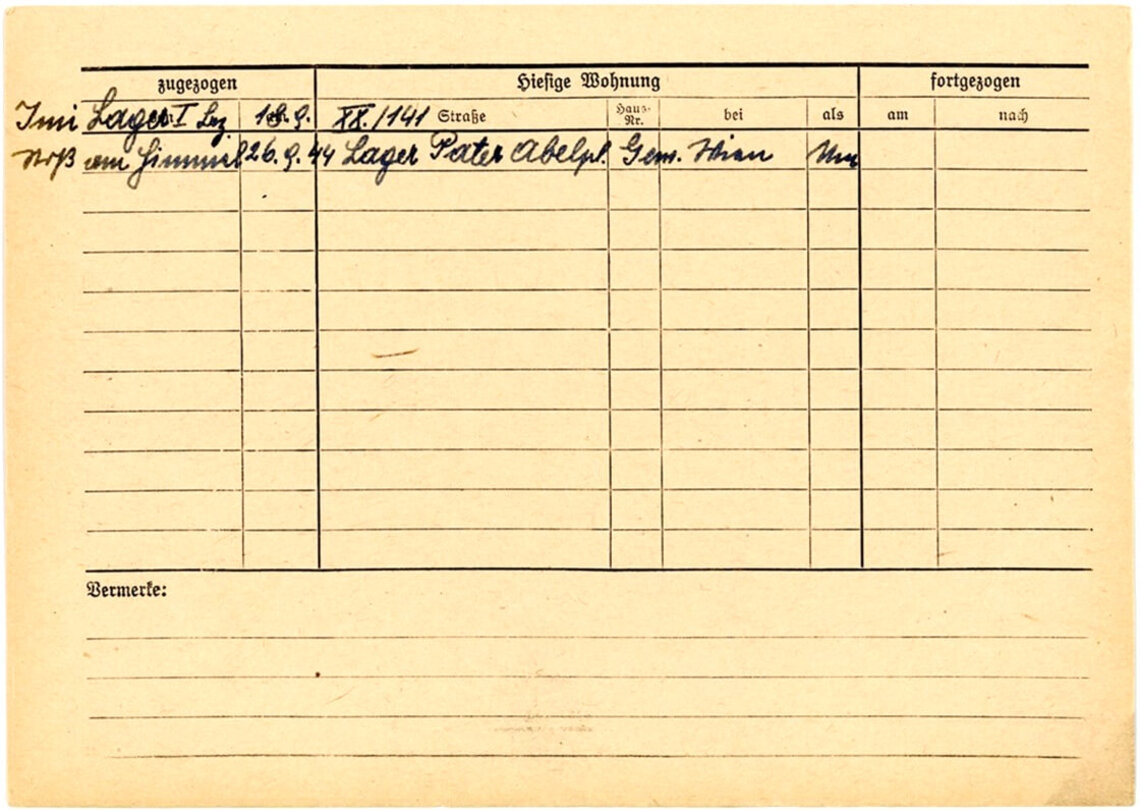 zugezogen Hiesige Wohnung fortgezogen
Straße Haus-Nr. bei als am nach
Lager I 18. 9. XX./141
am Himmel 26. 9. 44 Lager Pater Abelpl. Gem. Wien
Vermerke: